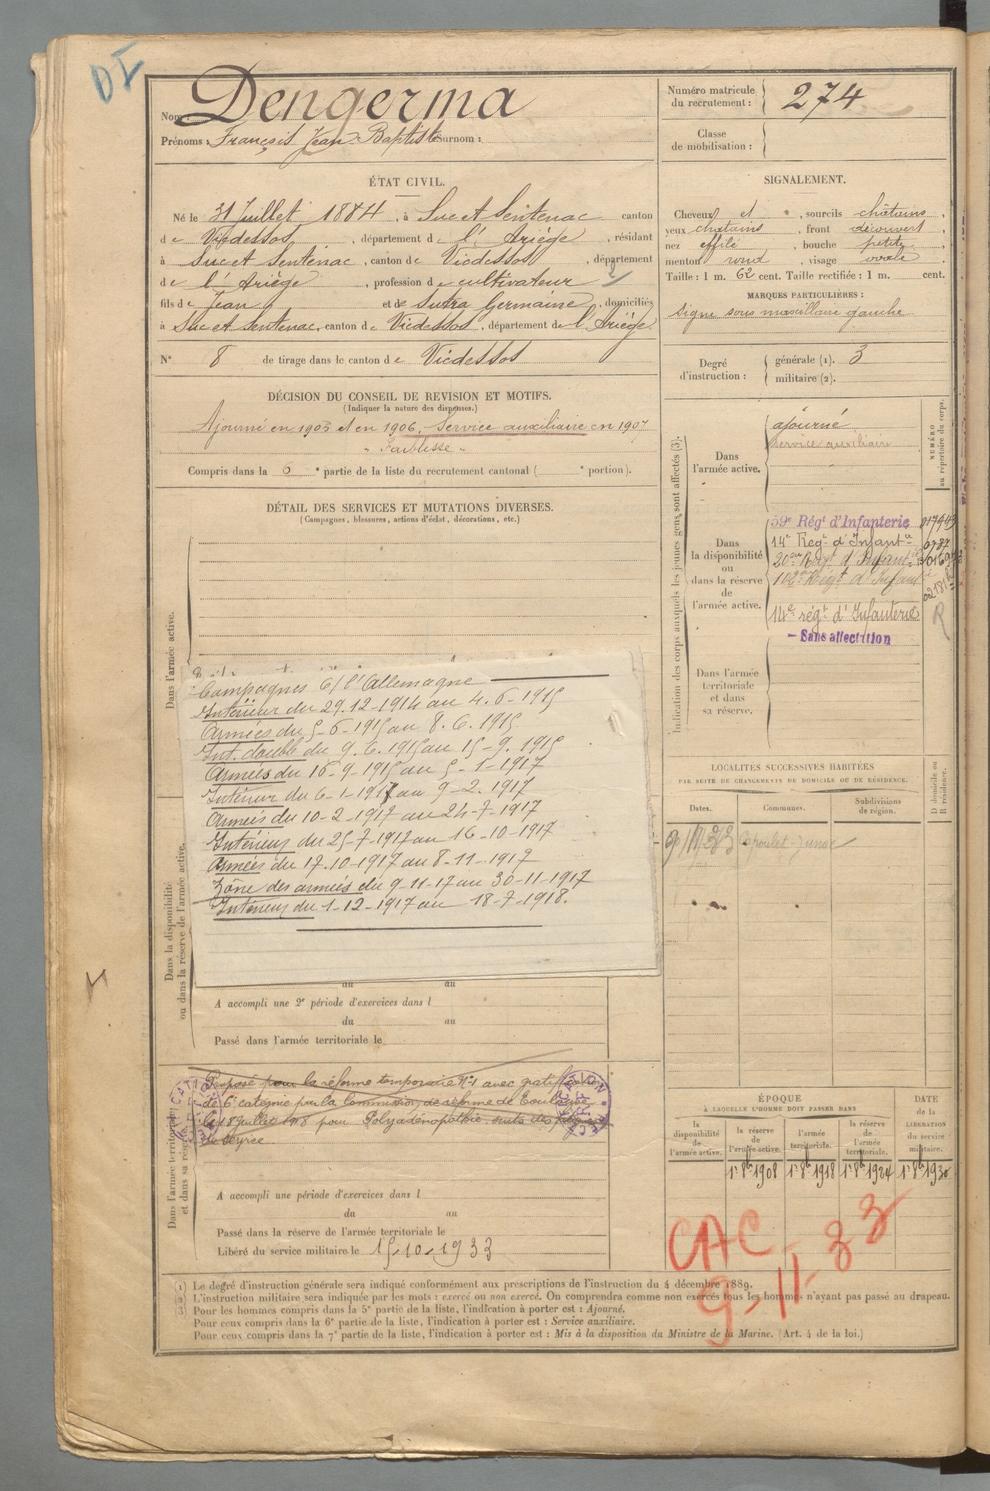 DI
Nom : Dengerma
Prénoms : François Jean Baptiste Surnom :
Numéro matricule du recrutement : 274
Classe de mobilisation :
ÉTAT CIVIL.
Né le 31 Juillet 1884, à Suc et Sentenac canton
de Vicdessos, département de l'Ariège, résidant
à Suc et Sentenac, canton de Vicdessos, département
de l'Ariège, profession de cultivateur
fils de Jean et de Sutra Germaine, domiciliés
à Suc et Sentenac, canton de Vicdessos, département de l'Ariège
N° 8 de tirage dans le canton de Vicdessos
SIGNALEMENT.
Cheveux et sourcils châtains,
yeux chatains, front découvert
nez effilé, bouche petite,
menton rond, visage ovale
Taille : 1 m. 62 cent. Taille rectifiée : 1 m. cent.
MARQUES PARTICULIÈRES :
signe sous maxillaire gauche
Degré d'instruction :
générale (1). 3
militaire (2).
DÉCISION DU CONSEIL DE REVISION ET MOTIFS.
(Indiquer la nature des dispenses.)
Ajourné en 1905 et en 1906, Service auxiliaire en 1907
"Faiblesse"
Compris dans la 6e partie de la liste du recrutement cantonal ( e portion).
DÉTAIL DES SERVICES ET MUTATIONS DIVERSES.
(Campagnes, blessures, actions d'éclat, décorations, etc.)
Dans l'armée active.
Campagnes C/ l'Allemagne
Intérieur du 29.12-1914 au 4-6-1915
Armées du 5-6-1915 au 8.6.1915
Int. double du 9.6.1915 au 15-9.1915
Armées du 16-9-1915 au 5-1-1917
Intérieur du 6-1-1917 au 9-2.1917
Armées du 10-2-1917 au 24-7-1917
Intérieur du 25-7-1917 au 16-10-1917
Armées du 17.10-1917 au 8-11-1917
Zône des armées du 9-11-17 au 30-11-1917
Intérieur du 1-12-1917 au 18-7-1918.
Dans la disponibilité
ou dans la réserve de l'armée active.
du au
A accompli une 2e période d'exercices dans l
du au
Passé dans l'armée territoriale le
Dans l'armée territoriale
et dans sa réserve.
Proposé pour la réforme temporaire N°1 avec gratification
de 6e catégorie par la Commission de réforme de Toulouse
le 18 juillet 1918 pour Polyadénopathie suite de
A accompli une période d'exercices dans l
du au
Passé dans la réserve de l'armée territoriale le
Libéré du service militaire le 15-10-1933
Indication des corps auxquels les jeunes gens sont affectés (3).
NUMÉRO
au répertoire du corps.
Dans l'armée active.
ajourné
Service auxiliaire
Dans la disponibilité ou dans la réserve de l'armée active.
59e Régt d'Infanterie
14e Régt d'Infantie
20me Régt d'Infantie
102me Régt d'Infantie
14e régt d'Infanterie R
- Sans affectation
Dans l'armée territoriale et dans sa réserve.
LOCALITÉS SUCCESSIVES HABITÉES
PAR SUITE DE CHANGEMENTS DE DOMICILE OU DE RÉSIDENCE.
Dates.
Communes.
Subdivisions de région.
D domicile ou R résidence.
Capoulet-Junac
ÉPOQUE
À LAQUELLE L'HOMME DOIT PASSER DANS
la disponibilité de l'armée active.
la réserve de l'armée active.
l'armée territoriale.
la réserve de l'armée territoriale.
DATE de la LIBÉRATION du service militaire.
1er 8bre 1908
1er 8bre 1918
1er 8bre 1924
1er 8bre 1930
CAC
9-11-33
(1) Le degré d'instruction générale sera indiqué conformément aux prescriptions de l'instruction du 4 décembre 1889.
(2) L'instruction militaire sera indiquée par les mots : exercé ou non exercé. On comprendra comme non exercés tous les hommes n'ayant pas passé au drapeau.
(3) Pour les hommes compris dans la 5e partie de la liste, l'indication à porter est : Ajourné.
Pour ceux compris dans la 6e partie de la liste, l'indication à porter est : Service auxiliaire.
Pour ceux compris dans la 7e partie de la liste, l'indication à porter est : Mis à la disposition du Ministre de la Marine. (Art. 4 de la loi.)